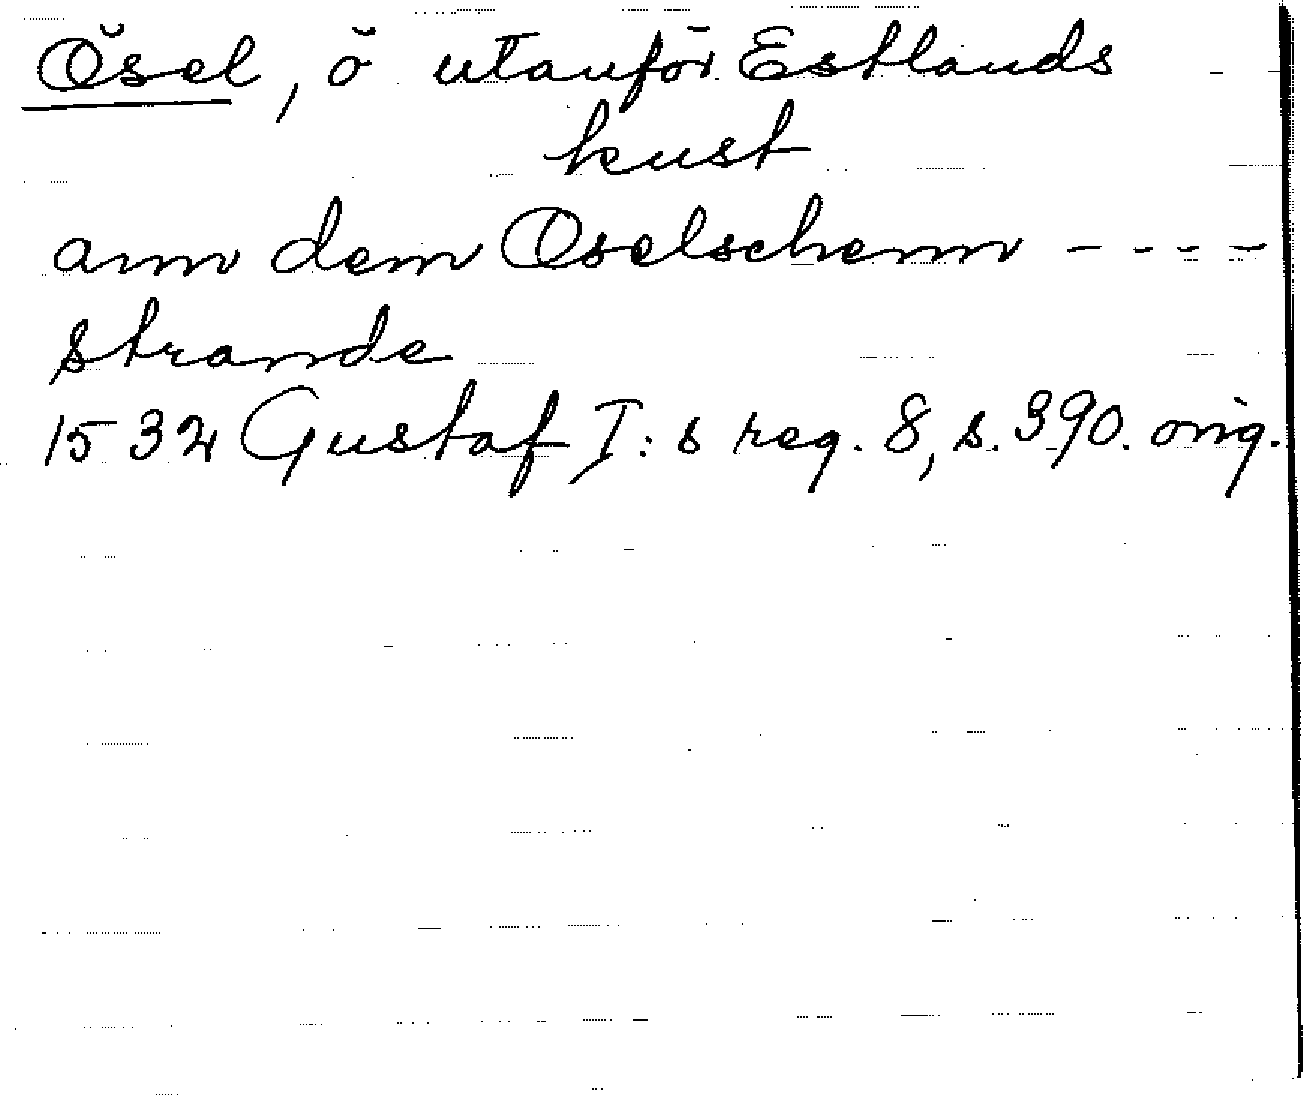 Ösel, ö utanför Estlands
kust
ann dem Oselschenn ----
strande
1532 Gustaf I:s reg. 8, s. 390. orig.